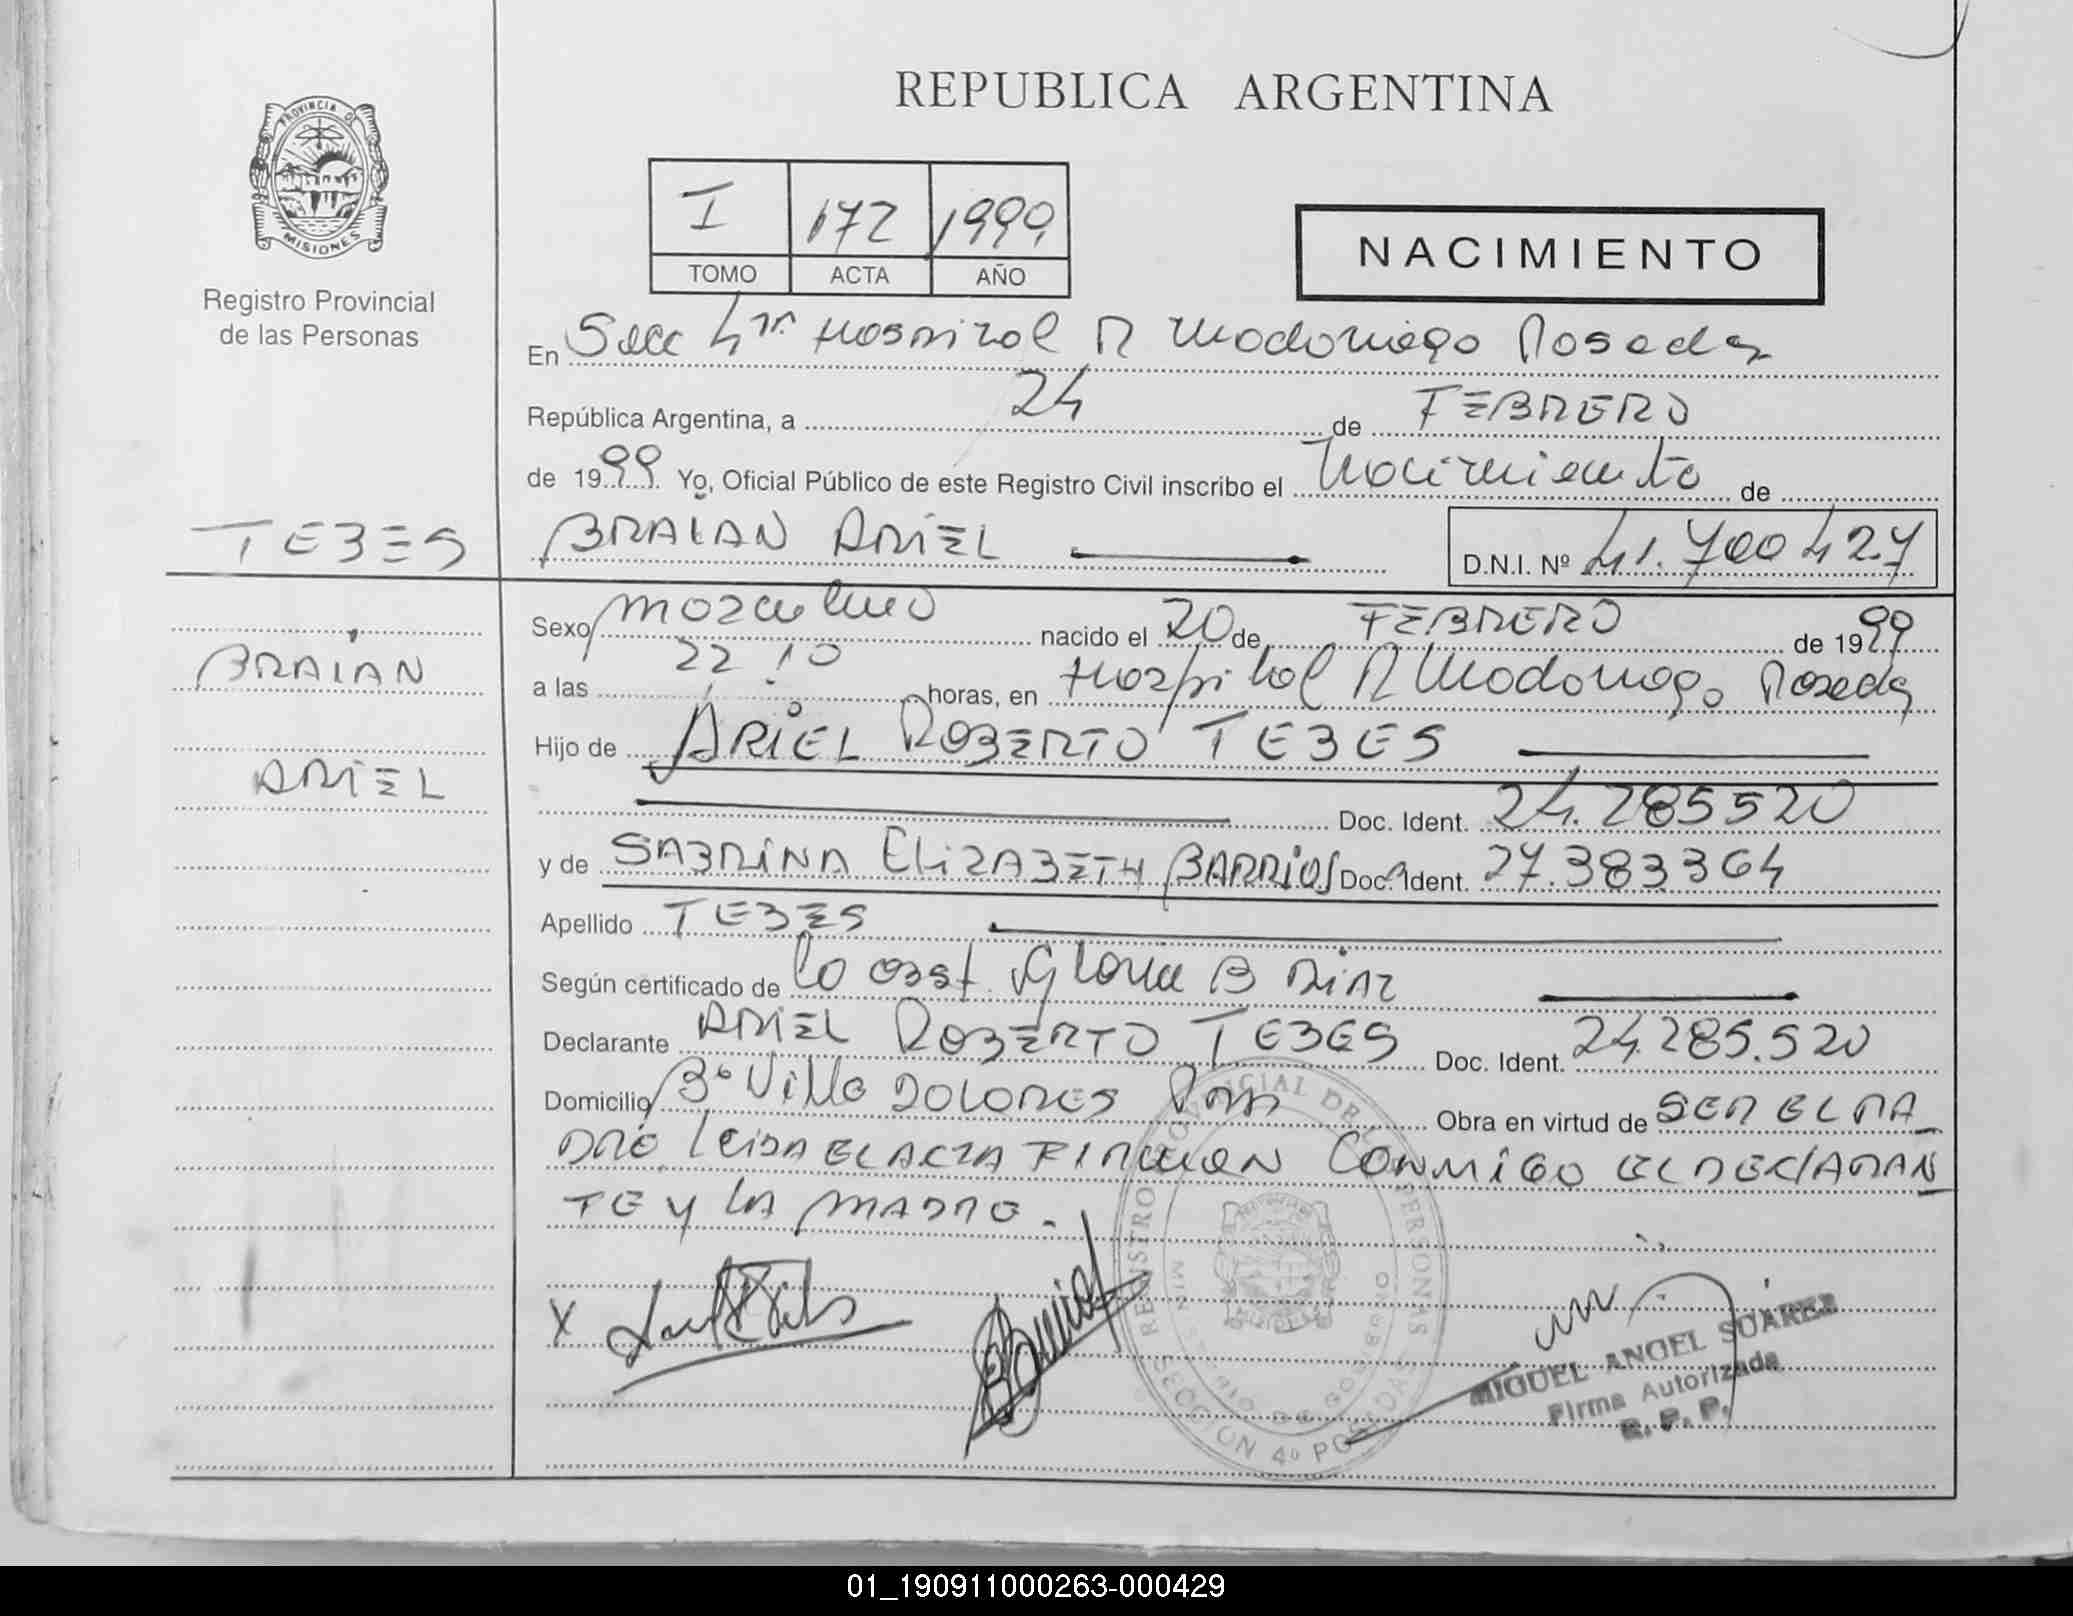 REPUBLICA ARGENTINA
PROVINCIA DE
MISIONES
Registro Provincial
de las Personas
I 172 1999
TOMO ACTA AÑO
NACIMIENTO
En Secc 4ta Hospital R Madariaga Posadas
República Argentina, a 24 de FEBRERO
de 1999 Yo, Oficial Público de este Registro Civil inscribo el Nacimiento de
TEBES
BRAIAN ARIEL
D.N.I. Nº 41.700427
BRAIAN
ARIEL
Sexo masculino nacido el 20 de FEBRERO de 1999
a las 22:10 horas, en Hospital R Madariaga Posadas
Hijo de ARIEL ROBERTO TEBES
Doc. Ident. 24.285520
y de SABRINA ELIZABETH BARRIOS Doc. Ident. 27.383364
Apellido TEBES
Según certificado de la obst. Gloria B DIAZ
Declarante ARIEL ROBERTO TEBES Doc. Ident. 24.285.520
Domicilio Bº Villa DOLORES Pos Obra en virtud de SER EL PA
DRE. LEIDA EL ACTA FIRMAN CONMIGO EL DECLARAN
TE Y LA MADRE.
REGISTRO PROVINCIAL DE LAS PERSONAS
MINISTERIO DE GOBIERNO
SECCION 4º POSADAS
X
MIGUEL ANGEL SUAREZ
Firma Autorizada
R. P. P.
01_190911000263-000429